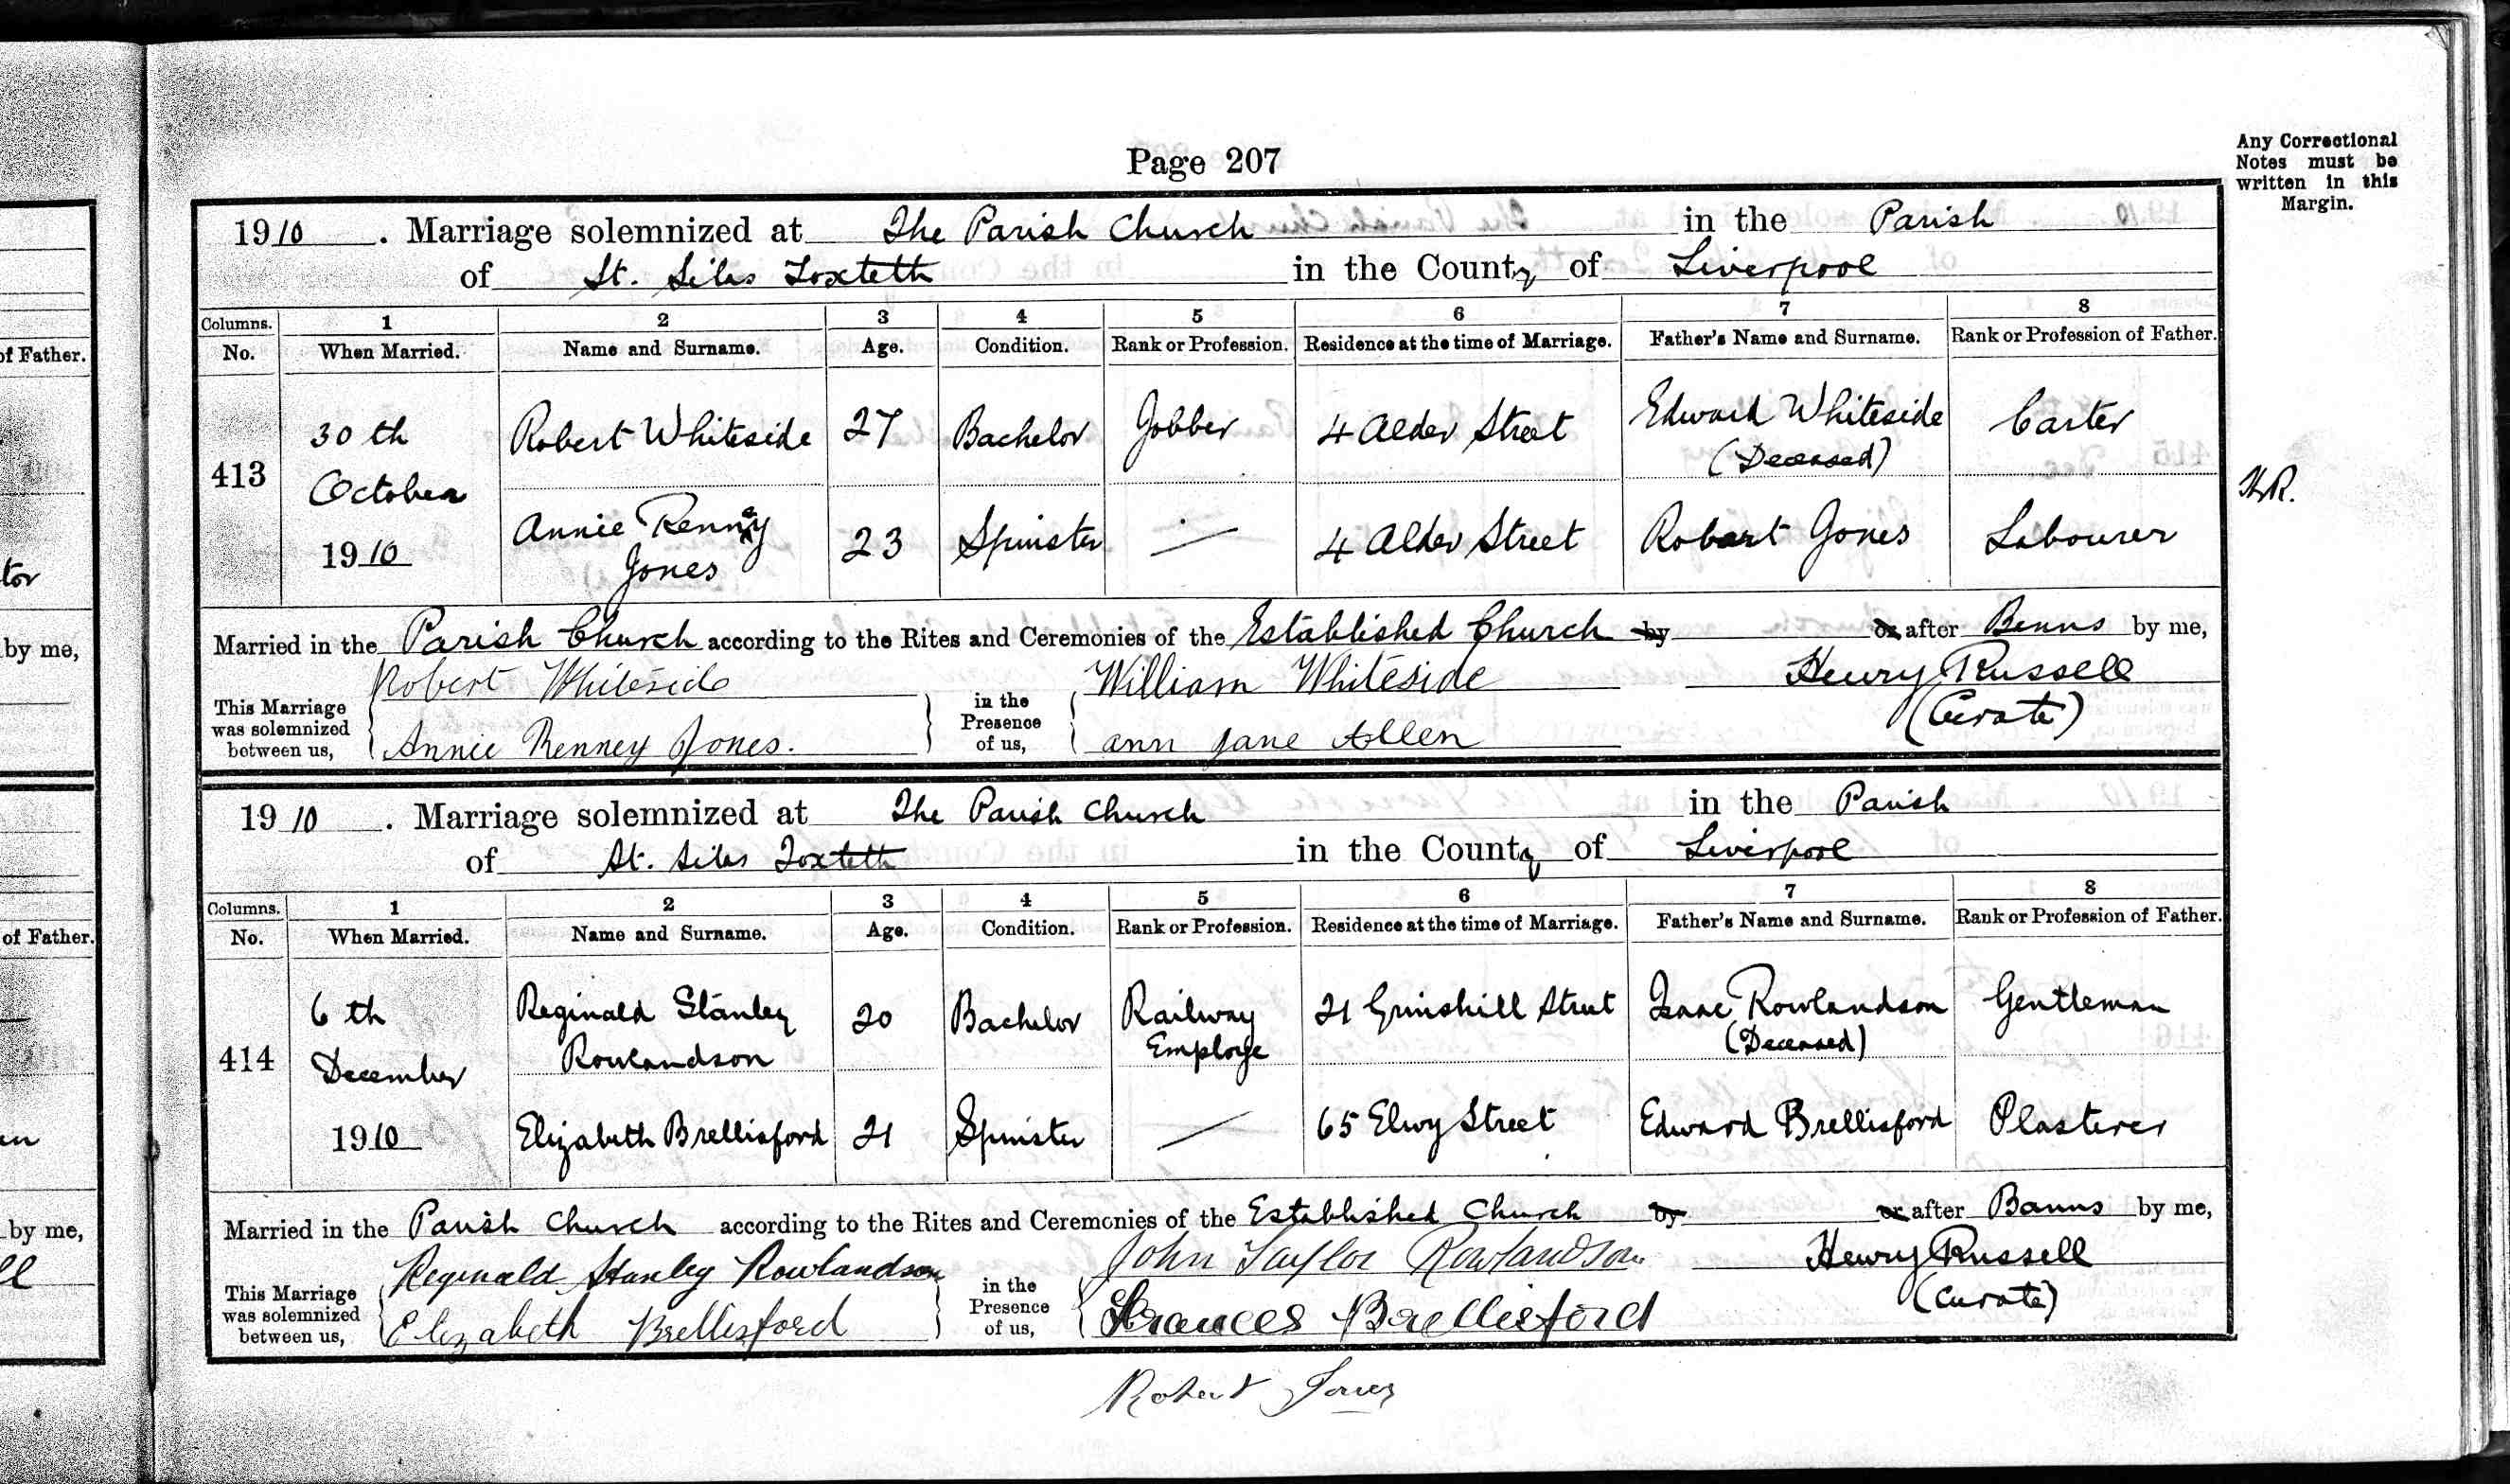 Page 207
Any Correctional
Notes must be
written in this
Margin.
1910 . Marriage solemnized at The Parish Church in the Parish
of St. Silas Toxteth in the County of Liverpool
Columns. 1 2 3 4 5 6 7 8
No. When Married. Name and Surname. Age. Condition. Rank or Profession. Residence at the time of Marriage. Father's Name and Surname. Rank or Profession of Father.
413 30th October 1910 Robert Whiteside 27 Bachelor Jobber 4 Alder Street Edward Whiteside (Deceased) Carter
Annie Renney Jones 23 Spinster — 4 Alder Street Robert Jones Labourer
H.R.
Married in the Parish Church according to the Rites and Ceremonies of the Established Church by or after Banns by me,
Robert Whiteside
William Whiteside
Henry Russell
(Curate)
This Marriage
was solemnized
between us,
in the
Presence
of us,
Annie Renney Jones.
ann Jane Allen
1910 . Marriage solemnized at The Parish Church in the Parish
of St. Silas Toxteth in the County of Liverpool
Columns. 1 2 3 4 5 6 7 8
No. When Married. Name and Surname. Age. Condition. Rank or Profession. Residence at the time of Marriage. Father's Name and Surname. Rank or Profession of Father.
414 6th December 1910 Reginald Stanley Rowlandson 20 Bachelor Railway Employe 21 Grinshill Street Isaac Rowlandson (Deceased) Gentleman
Elizabeth Brellisford 21 Spinster — 65 Elwy Street Edward Brellisford Plasterer
Married in the Parish Church according to the Rites and Ceremonies of the Established Church by or after Banns by me,
Reginald Stanley Rowlandson
John Taylor Rowlandson
Henry Russell
(Curate)
This Marriage
was solemnized
between us,
in the
Presence
of us,
Elizabeth Brellisford
Frances Brellisford
Robert Jones
of Father.
tor
by me,
of Father.
by me,